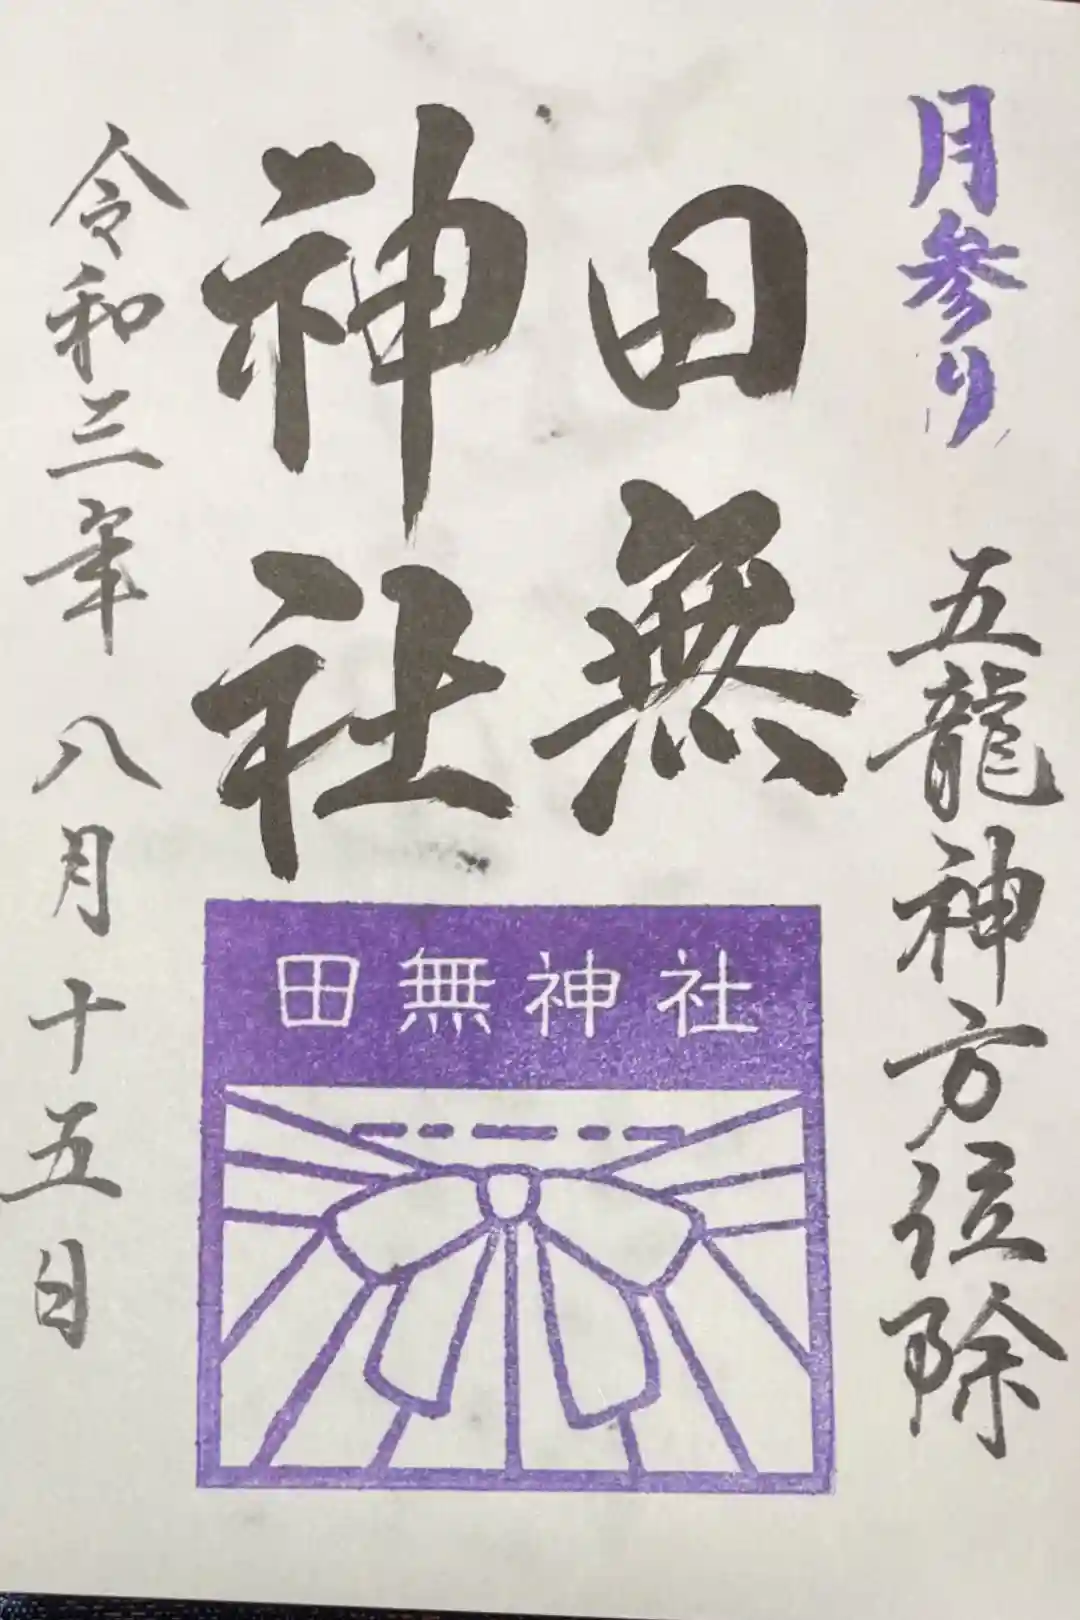 月参り
五龍神方位除
田無
神社
令和三年 八月十五日
田無神社